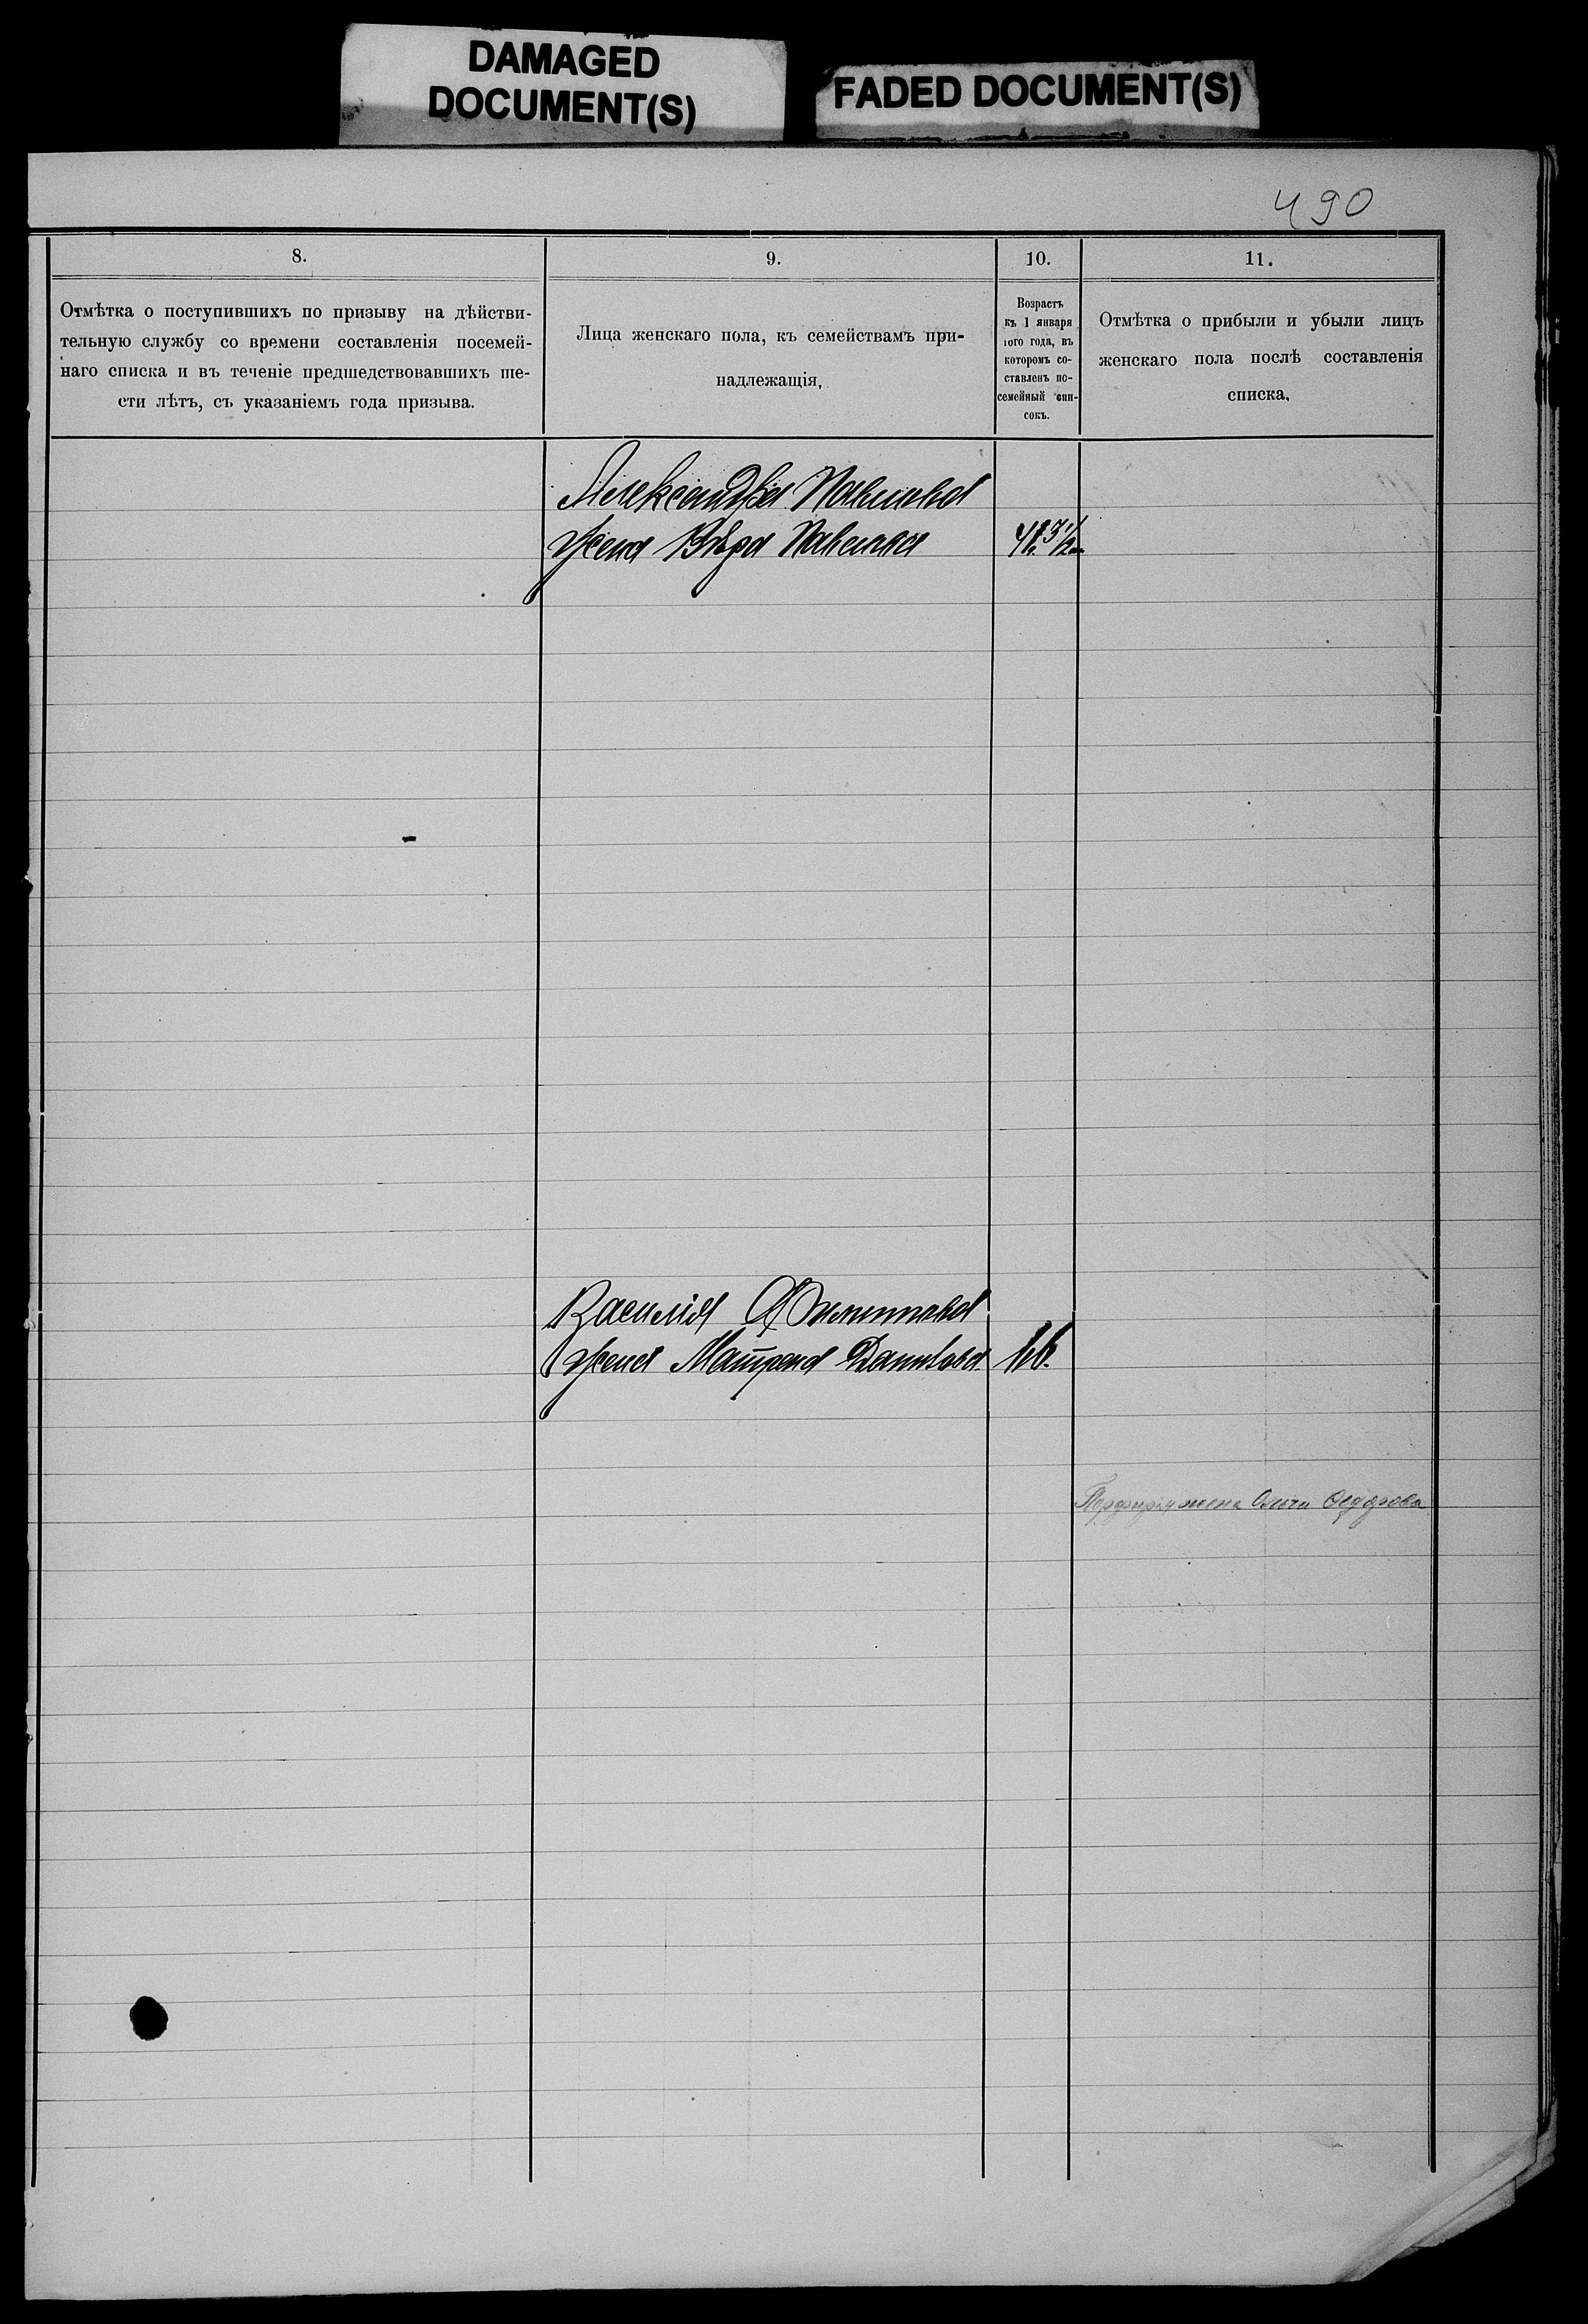 DAMAGED
DOCUMENT(S)
FADED DOCUMENT(S)
490
8.
9.
10.
11.
Отмѣтка о поступившихъ по призыву на дѣйстви-
тельную службу со времени составленія посемей-
наго списка и въ теченіе предшедствовавшихъ ше-
сти лѣтъ, съ указаніемъ года призыва.
Лица женскаго пола, къ семействамъ при-
надлежащія.
Возрастъ
къ 1 января
того года, въ
которомъ со-
ставленъ по-
семейный спи-
сокъ.
Отмѣтка о прибыли и убыли лицъ
женскаго пола послѣ составленія
списка.
Александра Павлова
жена Вѣра Павлова
Василія Филиппова
жена Матрена Данилова
жена Ольга Ѳедорова